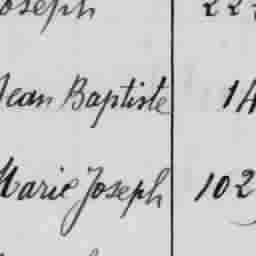 Joseph
Jean Baptiste 14
Marie Joseph 102